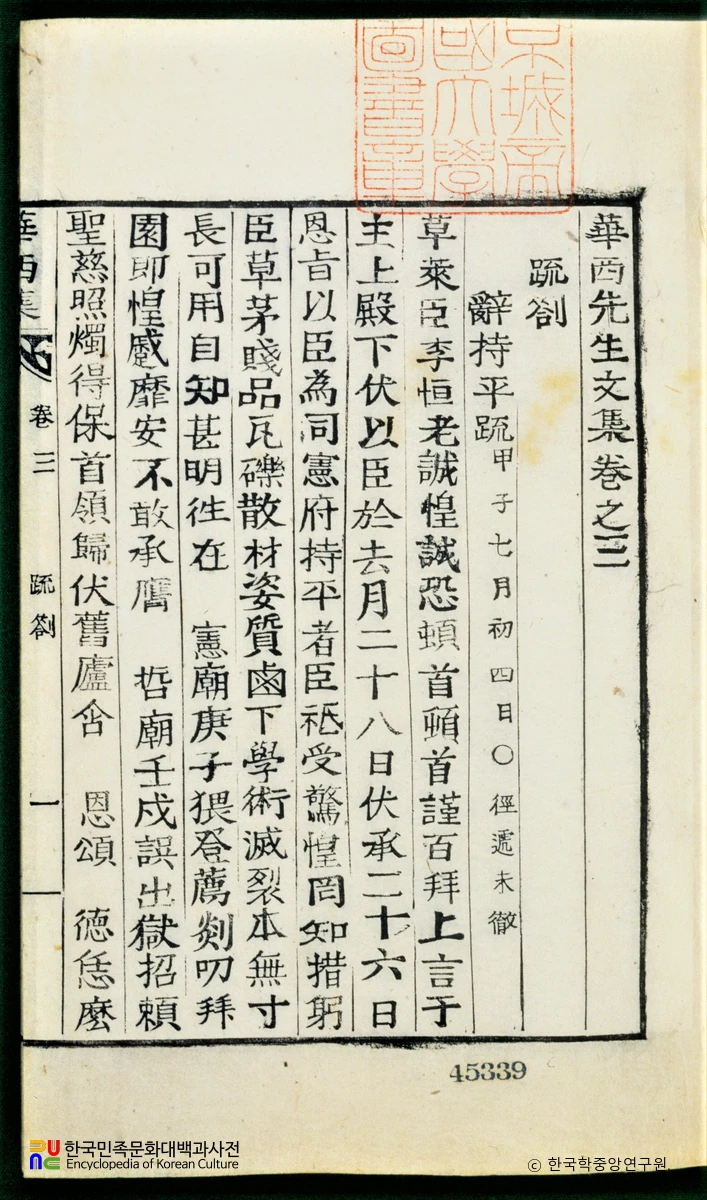 京城帝
國大學
圖書章
華西先生文集卷之三
疏劄
辭持平疏甲子七月初四日○徑遞未徹
草萊臣李恒老誠惶誠恐頓首頓首謹百拜上言于
主上殿下伏以臣於去月二十八日伏承二十六日
恩旨以臣為司憲府持平者臣祗受驚惶罔知措躬
臣草茅賤品瓦礫散材姿質鹵下學術滅裂本無寸
長可用自知甚明徃在 憲廟庚子猥登薦剡叨拜
園郎惶蹙靡安不敢承膺 哲廟壬戌誤出獄招賴
聖慈照燭得保首領歸伏舊廬含 恩頌 德恁麽
華西集 卷三 疏劄 一
45339
한국민족문화대백과사전
Encyclopedia of Korean Culture
© 한국학중앙연구원